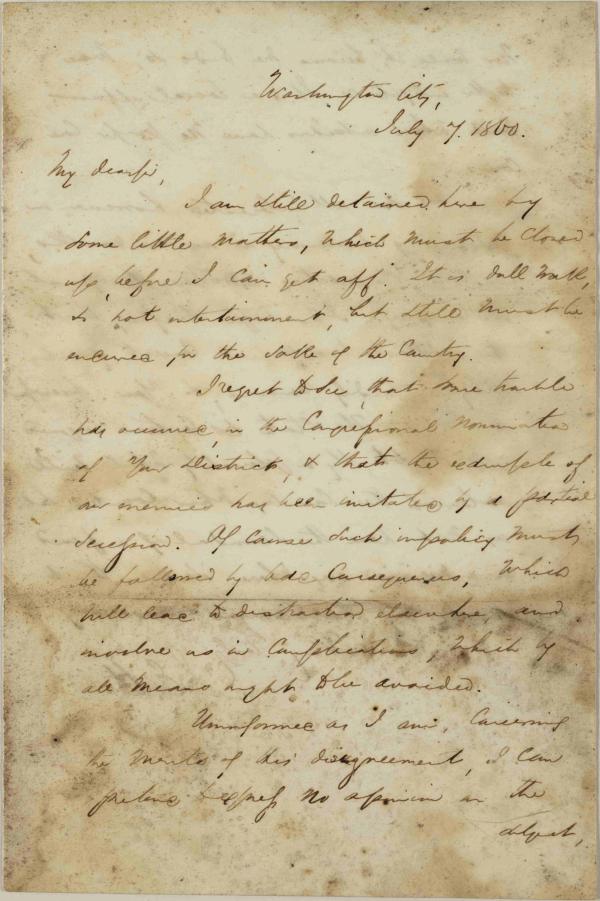 Washington City,
July 7. 1860.
My dear sir,
I am still detained here by
some little matters, which must be closed
up, before I can get off. It is dull work,
& not entertainment, but still must be
incurred for the sake of the Country.
I regret to see, that some trouble
has occurred, in the Congressional nomination
of your District, & that the example of
our enemies has been imitated by a partial
Secession. Of course such impolicy must
be followed by bad Consequences, which
will lead to distraction elsewhere, and
involve us in Complications, which by
all means ought to be avoided.
Uninformed as I am, Concerning
the merits of this disagreement, I can
pretend to express no opinion on the
subject,